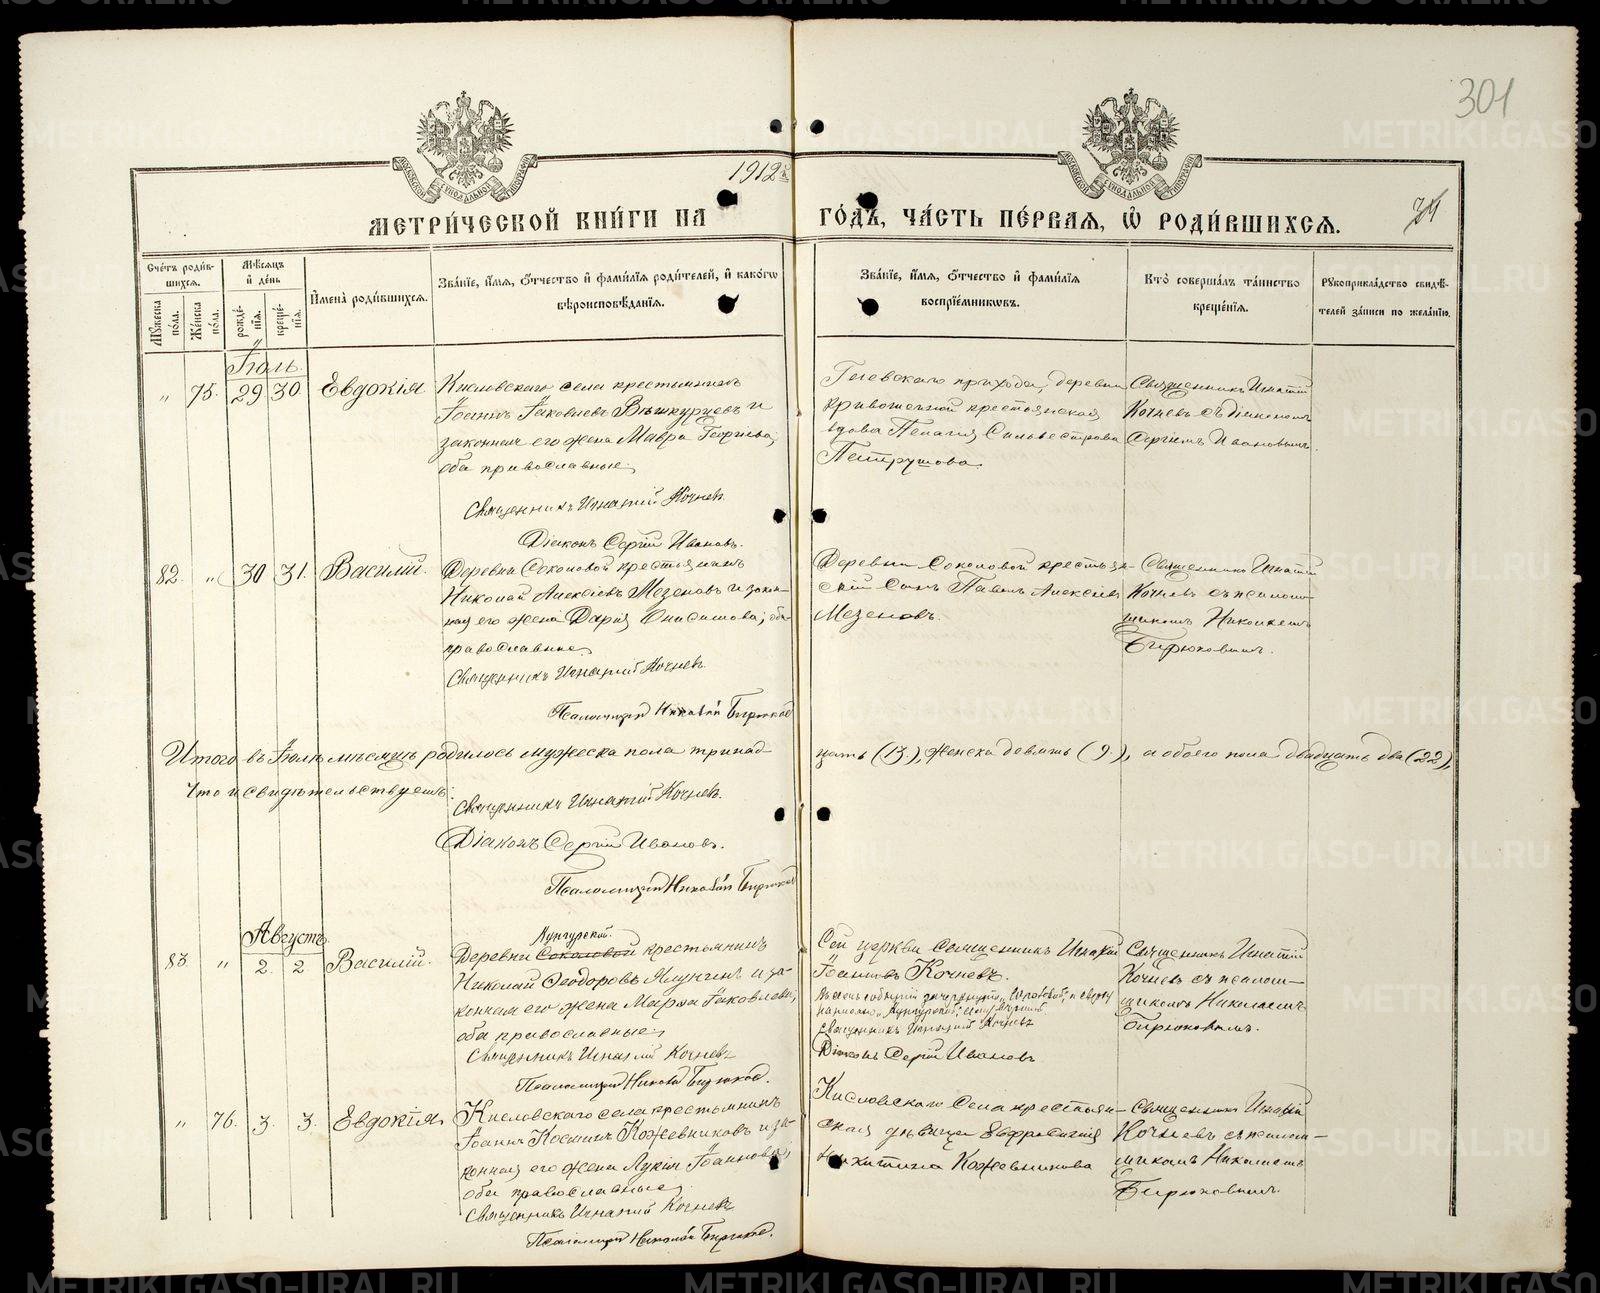 301
1912 г.
МЕТРИ́ЧЕСКОЙ КНИ́ГИ НА ГО́ДЪ, ЧА́СТЬ ПЕ́РВАЯ, Ѡ҆ РОДИ́ВШИХСЯ.
Сче́тъ роди́вшихся.
Мꙋ́жеска по́ла.
Же́нска по́ла.
Мѣ́сяцъ и҆ де́нь
рожде́нїя.
креще́нїя.
И҆мена̀ роди́вшихся.
Зва́нїе, и҆́мя, ѻ҆́тчество и҆ фами́лїя роди́телей, и҆ како́гѡ
вѣроисповѣ́данїя.
Зва́нїе, и҆́мя, ѻ҆́тчество и҆ фами́лїя
воспрїе́мниковъ.
Кто̀ соверша́лъ та́инство
креще́нїя.
Рꙋкоприкла́дство свидѣ́телей за́писи по жела́нїю.
Іюль.
" 75. 29 30 Евдокія
Кисловскаго села крестьянинъ
Іоаннъ Іаковлевъ Вышкурцевъ и
законная его жена Мавра Георгіева;
оба православные.
Священникъ Игнатій Кочневъ.
Діаконъ Сергій Ивановъ.
прихода, деревни
крестьянская
вдова Пелагія Сильвестрова
Петрушова.
Священникъ Игнатій
Кочневъ съ діакономъ
Сергіемъ Ивановымъ.
82. " 30 31. Василій.
Деревни Соколовой крестьянинъ
Николай Алексіевъ Мезеновъ и закон-
ная его жена Дарія Онисимова; оба
православные.
Священникъ Игнатій Кочневъ.
Псаломщикъ Николай Бирюковъ
Деревни Соколовой крестьян-
скій сынъ Павелъ Алексіевъ
Мезеновъ.
Священникъ Игнатій
Кочневъ съ псалом-
щикомъ Николаемъ
Бирюковымъ.
Итого въ Іюлѣ мѣсяцѣ родилось мужеска пола тринад-
цать (13), женска девять (9), а обоего пола двадцать два (22),
что и свидѣтельствуемъ:
Священникъ Игнатій Кочневъ.
Діаконъ Сергій Ивановъ.
Псаломщикъ Николай Бирюковъ
Августъ
83. " 2. 2 Василій.
Кунгурской.
Деревни Соколовой крестьянинъ
Николай Ѳеодоровъ Ялунинъ и за-
конная его жена Марѳа Іаковлева;
оба православные;
Священникъ Игнатій Кочневъ
Псаломщикъ Николай Бирюковъ.
Сей церкви Священникъ Игнатій
Іоанновъ Кочневъ.
священникъ Игнатій Кочневъ
Діаконъ Сергій Ивановъ
Священникъ Игнатій
Кочневъ съ псалом-
щикомъ Николаемъ
Бирюковымъ.
" 76. 3. 3. Евдокія
Кисловскаго села крестьянинъ
Іоаннъ Косминъ Кожевниковъ и за-
конная его жена Лукія Іоаннова;
оба православные;
Священникъ Игнатій Кочневъ
Псаломщикъ Николай Бирюковъ.
Кисловскаго села крестьян-
ская дѣвица Евфросинія
Никитина Кожевникова
Священникъ Игнатій
Кочневъ съ псалом-
щикомъ Николаемъ
Бирюковымъ.
METRIKI.GASO-URAL.RU